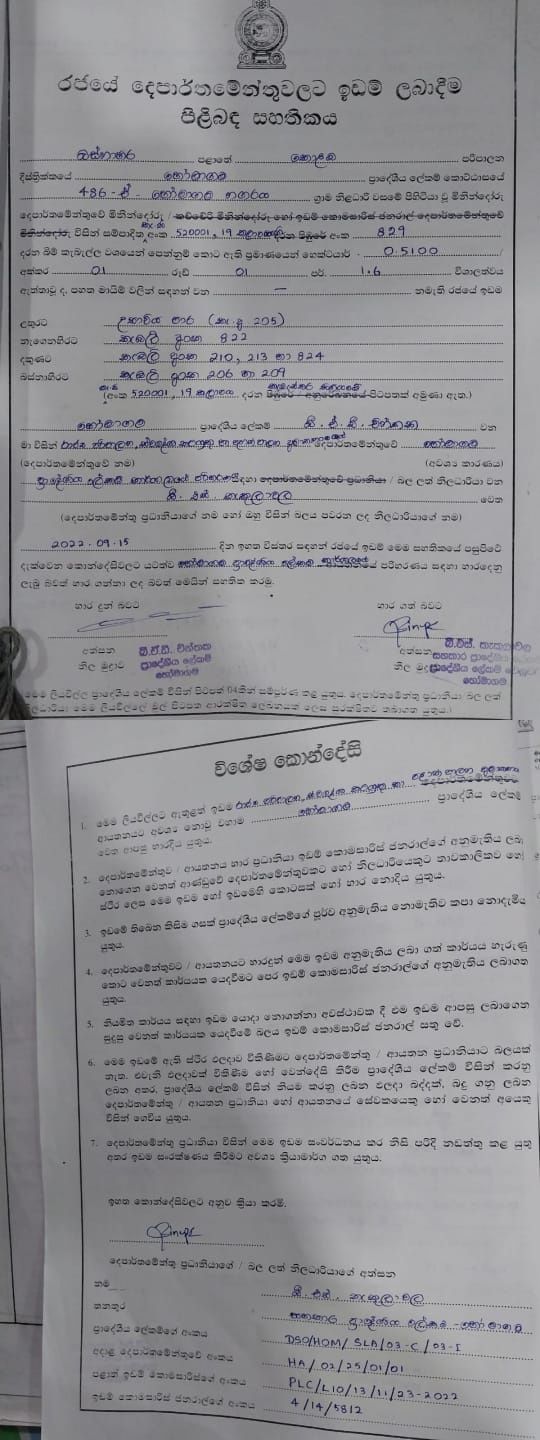 රජයේ දෙපාර්තමේන්තුවලට ඉඩම් ලබාදීම
පිළිබඳ සහතිකය
බස්නාහිර පළාතේ කොළඹ පරිපාලන
දිස්ත්‍රික්කයේ හෝමාගම ප්‍රාදේශීය ලේකම් කොට්ඨාසයේ
486-ඒ - හෝමාගම නගරය ග්‍රාම නිළධාරී වසමේ පිහිටියා වූ මිනින්දෝරු
දෙපාර්තමේන්තුවේ මිනින්දෝරු / කච්චේරි මිනින්දෝරු හෝ ඉඩම් කොමසාරිස් ජනරාල් දෙපාර්තමේන්තුවේ
මිනින්දෝරු විසින් සම්පාදිත අංක 520001, 19 දරන පිඹුරේ අංක 829
දරන බිම් කැබැල්ල වශයෙන් පෙන්නුම් කොට ඇති ප්‍රමාණයෙන් හෙක්ටයාර් 0.5100 /
අක්කර 01 රූඩ් 01 පර්. 1.6 විශාලත්වය
ඇත්තාවූ ද, පහත මායිම් වලින් සඳහන් වන — නමැති රජයේ ඉඩම
උතුරට පාර (කැ.අ 205)
නැගෙනහිරට කැබලි අංක 822
දකුණට කැබලි අංක 210, 213 හා 824
බස්නාහිරට කැබලි අංක 206 හා 209
(අංක 520001, 19 දරන පිඹුරේ / අනුරේඛනයේ පිටපතක් අමුණා ඇත.)
හෝමාගම ප්‍රාදේශීය ලේකම් චින්තක වන
මා විසින් දෙපාර්තමේන්තුවේ හෝමාගම
(දෙපාර්තමේන්තුවේ නම) (අවශ්‍ය කාරණය)
ප්‍රාදේශීය ලේකම් සඳහා දෙපාර්තමේන්තුවේ ප්‍රධානියා / බල ලත් නිලධාරියා වන
වෙත
(දෙපාර්තමේන්තු ප්‍රධානියාගේ නම හෝ ඔහු විසින් බලය පවරන ලද නිලධාරියාගේ නම)
2022.09.15 දින ඉහත විස්තර සඳහන් රජයේ ඉඩම මෙම සහතිකයේ පසුපිටේ
දැක්වෙන කොන්දේසිවලට යටත්ව හෝමාගම ප්‍රාදේශීය ලේකම් පරිහරණය සඳහා භාරදෙනු
ලැබූ බවත් භාර ගන්නා ලද බවත් මෙයින් සහතික කරමු.
භාර දුන් බවට භාර ගත් බවට
අත්සන අත්සන
නිල මුද්‍රාව නිල මුද්‍රාව
චින්තක
ප්‍රාදේශීය ලේකම්
හෝමාගම
සහකාර ප්‍රාදේශීය
ප්‍රාදේශීය ලේකම්
හෝමාගම
මෙම ලියවිල්ල ප්‍රාදේශීය ලේකම් විසින් පිටපත් 04කින් සම්පුර්ණ කළ යුතුය. දෙපාර්තමේන්තු ප්‍රධානියා බල ලත්
නිලධාරියා මෙම ලියවිල්ලේ මුල් පිටපත ආරක්ෂිත ලේඛනයක් ලෙස සුරක්ෂිතව තබාගත යුතුය.)
විශේෂ කොන්දේසි
1. මෙම ලියවිල්ලට ඇතුළත් ඉඩම දෙපාර්තමේන්තුවට
ආයතනයට අවශ්‍ය නොවූ වහාම හෝමාගම ප්‍රාදේශීය ලේකම්
වෙත ආපසු භාරදිය යුතුය.
2. දෙපාර්තමේන්තුව / ආයතනය භාර ප්‍රධානියා ඉඩම් කොමසාරිස් ජනරාල්ගේ අනුමැතිය ලබා
නොගෙන වෙනත් ආණ්ඩුවේ දෙපාර්තමේන්තුවකට හෝ නිලධාරියෙකුට තාවකාලිකව හෝ
ස්ථිර ලෙස මෙම ඉඩම හෝ ඉඩමෙහි කොටසක් හෝ භාර නොදිය යුතුය.
3. ඉඩමේ තිබෙන කිසිම ගසක් ප්‍රාදේශීය ලේකම්ගේ පූර්ව අනුමැතිය නොමැතිව කපා නොදැමිය
යුතුය.
4. දෙපාර්තමේන්තුවට / ආයතනයට භාරදුන් මෙම ඉඩම අනුමැතිය ලබා ගත් කාර්යය හැරුණු
කොට වෙනත් කාර්යයක යෙදවීමට පෙර ඉඩම් කොමසාරිස් ජනරාල්ගේ අනුමැතිය ලබාගත
යුතුය.
5. නියමිත කාර්ය සඳහා ඉඩම යොදා නොගන්නා අවස්ථාවක දී එම ඉඩම ආපසු ලබාගෙන
සුදුසු වෙනත් කාර්යයක යෙදවීමේ බලය ඉඩම් කොමසාරිස් ජනරාල් සතු වේ.
6. මෙම ඉඩමේ ඇති ස්ථිර ඵලදාව විකිණීමට දෙපාර්තමේන්තු / ආයතන ප්‍රධානියාට බලයක්
නැත. එවැනි ඵලදාවක් විකිණීම හෝ වෙන්දේසි කිරීම ප්‍රාදේශීය ලේකම් විසින් කරනු
ලබන අතර, ප්‍රාදේශීය ලේකම් විසින් නියම කරනු ලබන ඵලදා බද්දක්, බදු ගනු ලබන
දෙපාර්තමේන්තු / ආයතන ප්‍රධානියා හෝ ආයතනයේ සේවකයෙකු හෝ වෙනත් අයෙකු
විසින් ගෙවිය යුතුය.
7. දෙපාර්තමේන්තු ප්‍රධානියා විසින් මෙම ඉඩම සංවර්ධනය කර නිසි පරිදි නඩත්තු කළ යුතු
අතර ඉඩම සංරක්ෂණය කිරීමට අවශ්‍ය ක්‍රියාමාර්ග ගත යුතුය.
ඉහත කොන්දේසිවලට අනුව ක්‍රියා කරමි.
දෙපාර්තමේන්තු ප්‍රධානියාගේ / බල ලත් නිලධාරියාගේ අත්සන
නම
තනතුර සහකාර ප්‍රාදේශීය ලේකම් - හෝමාගම
ප්‍රාදේශීය ලේකම්ගේ අංකය DSO/HOM/SLA/03-C/03-I
අදාළ දෙපාර්තමේන්තුවේ අංකය HA/02/25/01/01
පළාත් ඉඩම් කොමසාරිස්ගේ අංකය PLC/L10/13/11/23-2022
ඉඩම් කොමසාරිස් ජනරාල්ගේ අංකය 4/14/5812